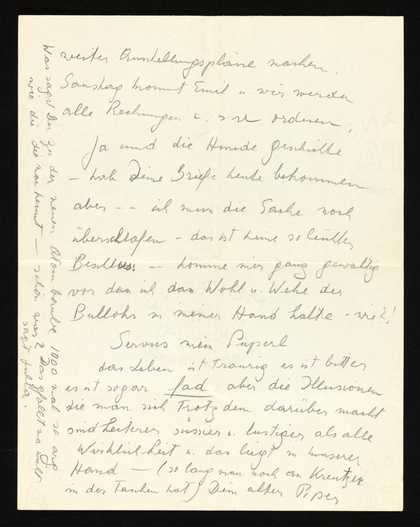 weiter Ausstellungspläne machen.
Samstag kommt Emil u. wir werden
alle Rechnungen u. s. w. ordnen.
Ja und die Hunde geschichte
– hab Deine Briefe heute bekommen
aber – – ich muss die Sache noch
überschlafen – das ist keine so leichte
– komme mir ganz gewaltig
vor dass ich das Wohl u. Wehe der
in meiner Hand halte – wie?!
Servus mein Puperl
das Leben ist traurig es ist bitter
es ist sogar fad aber die Illusionen
die man sich trotzdem darüber macht
sind heiterer süsser u. lustiger als alle
Wirklichkeit u. das liegt in unserer
Hand – (so lang man noch an Kreuzer
in der Taschen hat) Dein alter
Was sagst Du zu der neuen Atom bombe 1000 mal so arg
wie die die man kennt – schön was?
sagt